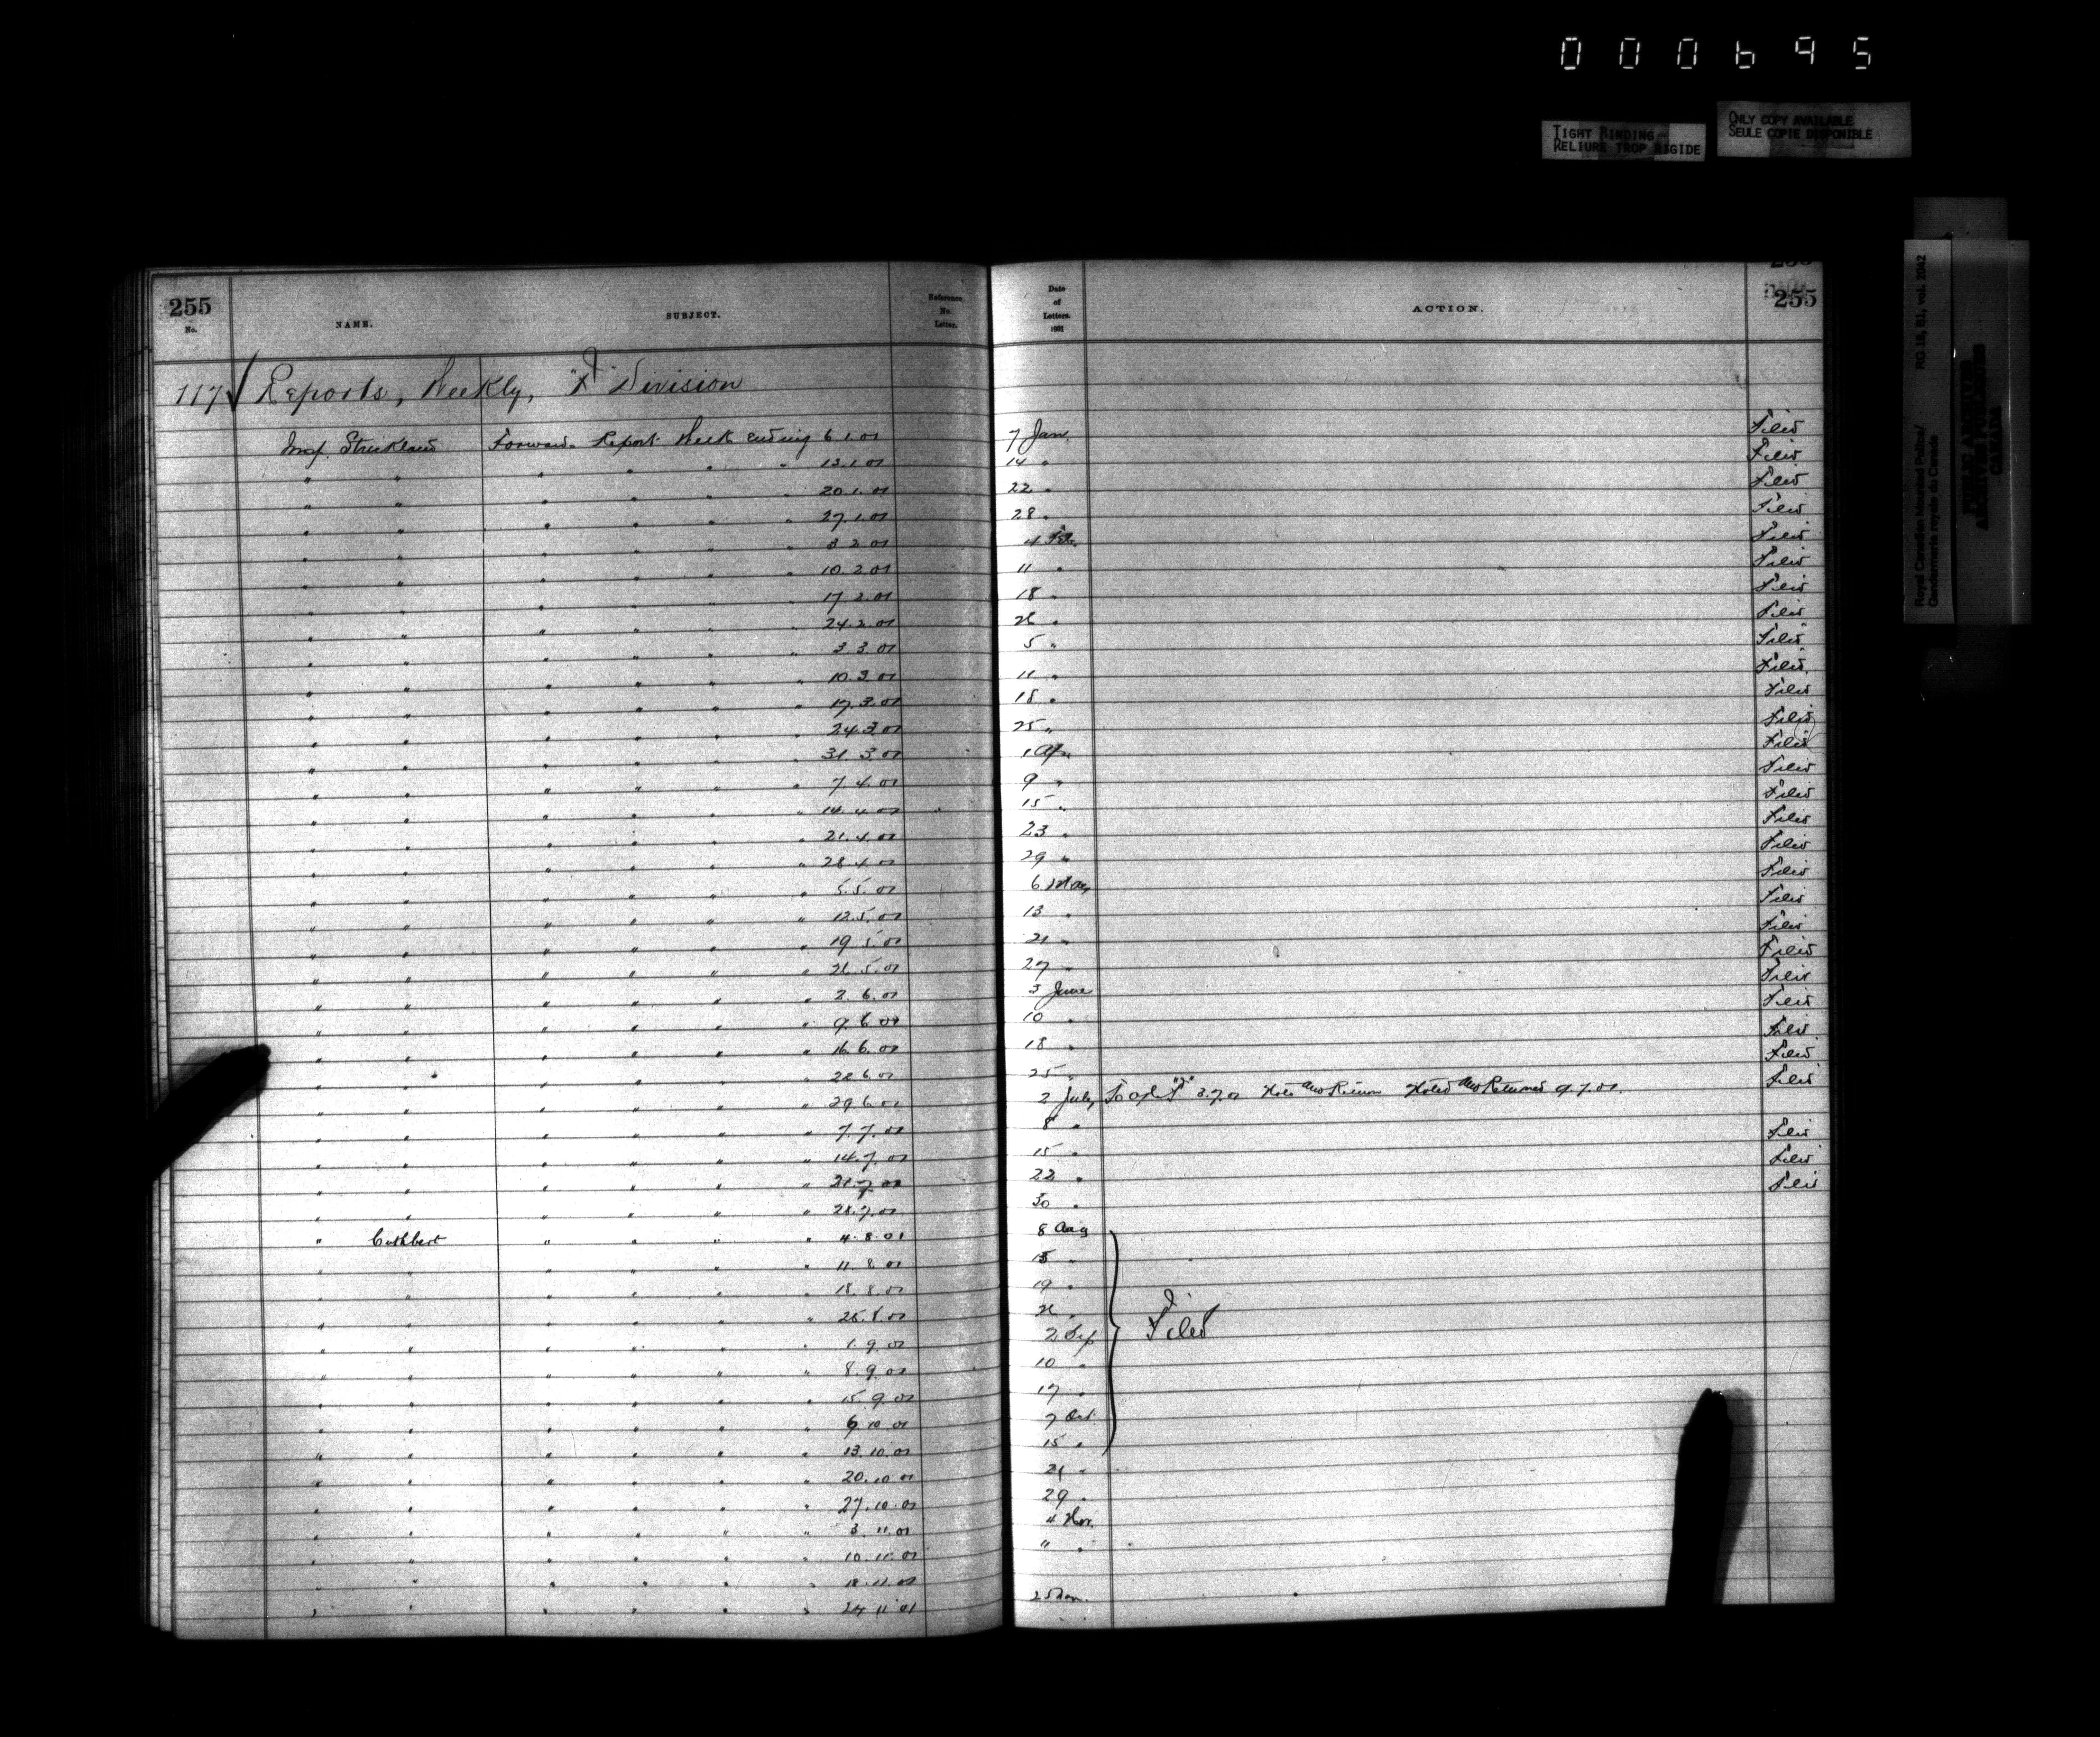 000695
TIGHT BINDING
RELIURE TROP RIGIDE
ONLY COPY AVAILABLE
SEULE COPIE DISPONIBLE
Royal Canadian Mounted Police/ RG 18, B1, vol. 2042
Gendarmerie royale du Canada
PUBLIC ARCHIVES
ARCHIVES PUBLIQUES
CANADA
255 No. NAME. SUBJECT. Reference No. Letter. Date of Letters. 1901 ACTION. 255
117 ✓ Reports, Weekly, Division
Insp. Strickland Forwards Report Week ending 6.1.01 7 Jan. Filed
" " " " " " 13.1.01 14 " Filed
" " " " " " 20.1.01 22 " Filed
" " " " " " 27.1.01 28 " Filed
" " " " " " 3.2.01 4 Feb. Filed
" " " " " " 10.2.01 11 " Filed
" " " " " " 17.2.01 18 " Filed
" " " " " " 24.2.01 26 " Filed
" " " " " " 3.3.01 5 " Filed
" " " " " " 10.3.01 11 " Filed
" " " " " " 17.3.01 18 " Filed
" " " " " " 24.3.01 25 " Filed
" " " " " " 31.3.01 1 Apr. Filed
" " " " " " 7.4.01 9 " Filed
" " " " " " 14.4.01 15 " Filed
" " " " " " 21.4.01 23 " Filed
" " " " " " 28.4.01 29 " Filed
" " " " " " 5.5.01 6 May Filed
" " " " " " 12.5.01 13 " Filed
" " " " " " 19.5.01 21 " Filed
" " " " " " 26.5.01 27 " Filed
" " " " " " 2.6.01 3 June Filed
" " " " " " 9.6.01 10 " Filed
" " " " " " 16.6.01 18 " Filed
" " " " " " 22.6.01 25 " Filed
" " " " " " 29.6.01 2 July To 3.7.01 Note and Return Noted and Returned 9.7.01. Filed
" " " " " " 7.7.01 8 "
" " " " " " 14.7.01 15 " Filed
" " " " " " 21.7.01 22 " Filed
" " " " " " 28.7.01 30 " Filed
" Cuthbert " " " " 4.8.01 8 Aug
" " " " " " 11.8.01 15 "
" " " " " " 18.8.01 19 "
" " " " " " 25.8.01 26 "
" " " " " " 1.9.01 2 Sep Filed
" " " " " " 8.9.01 10 "
" " " " " " 15.9.01 17 "
" " " " " " 6.10.01 7 Oct.
" " " " " " 13.10.01 15 "
" " " " " " 20.10.01 21 "
" " " " " " 27.10.01 29 "
" " " " " " 3.11.01 4 Nov.
" " " " " " 10.11.01 11 "
" " " " " " 18.11.01
" " " " " " 24.11.01 25 Nov.